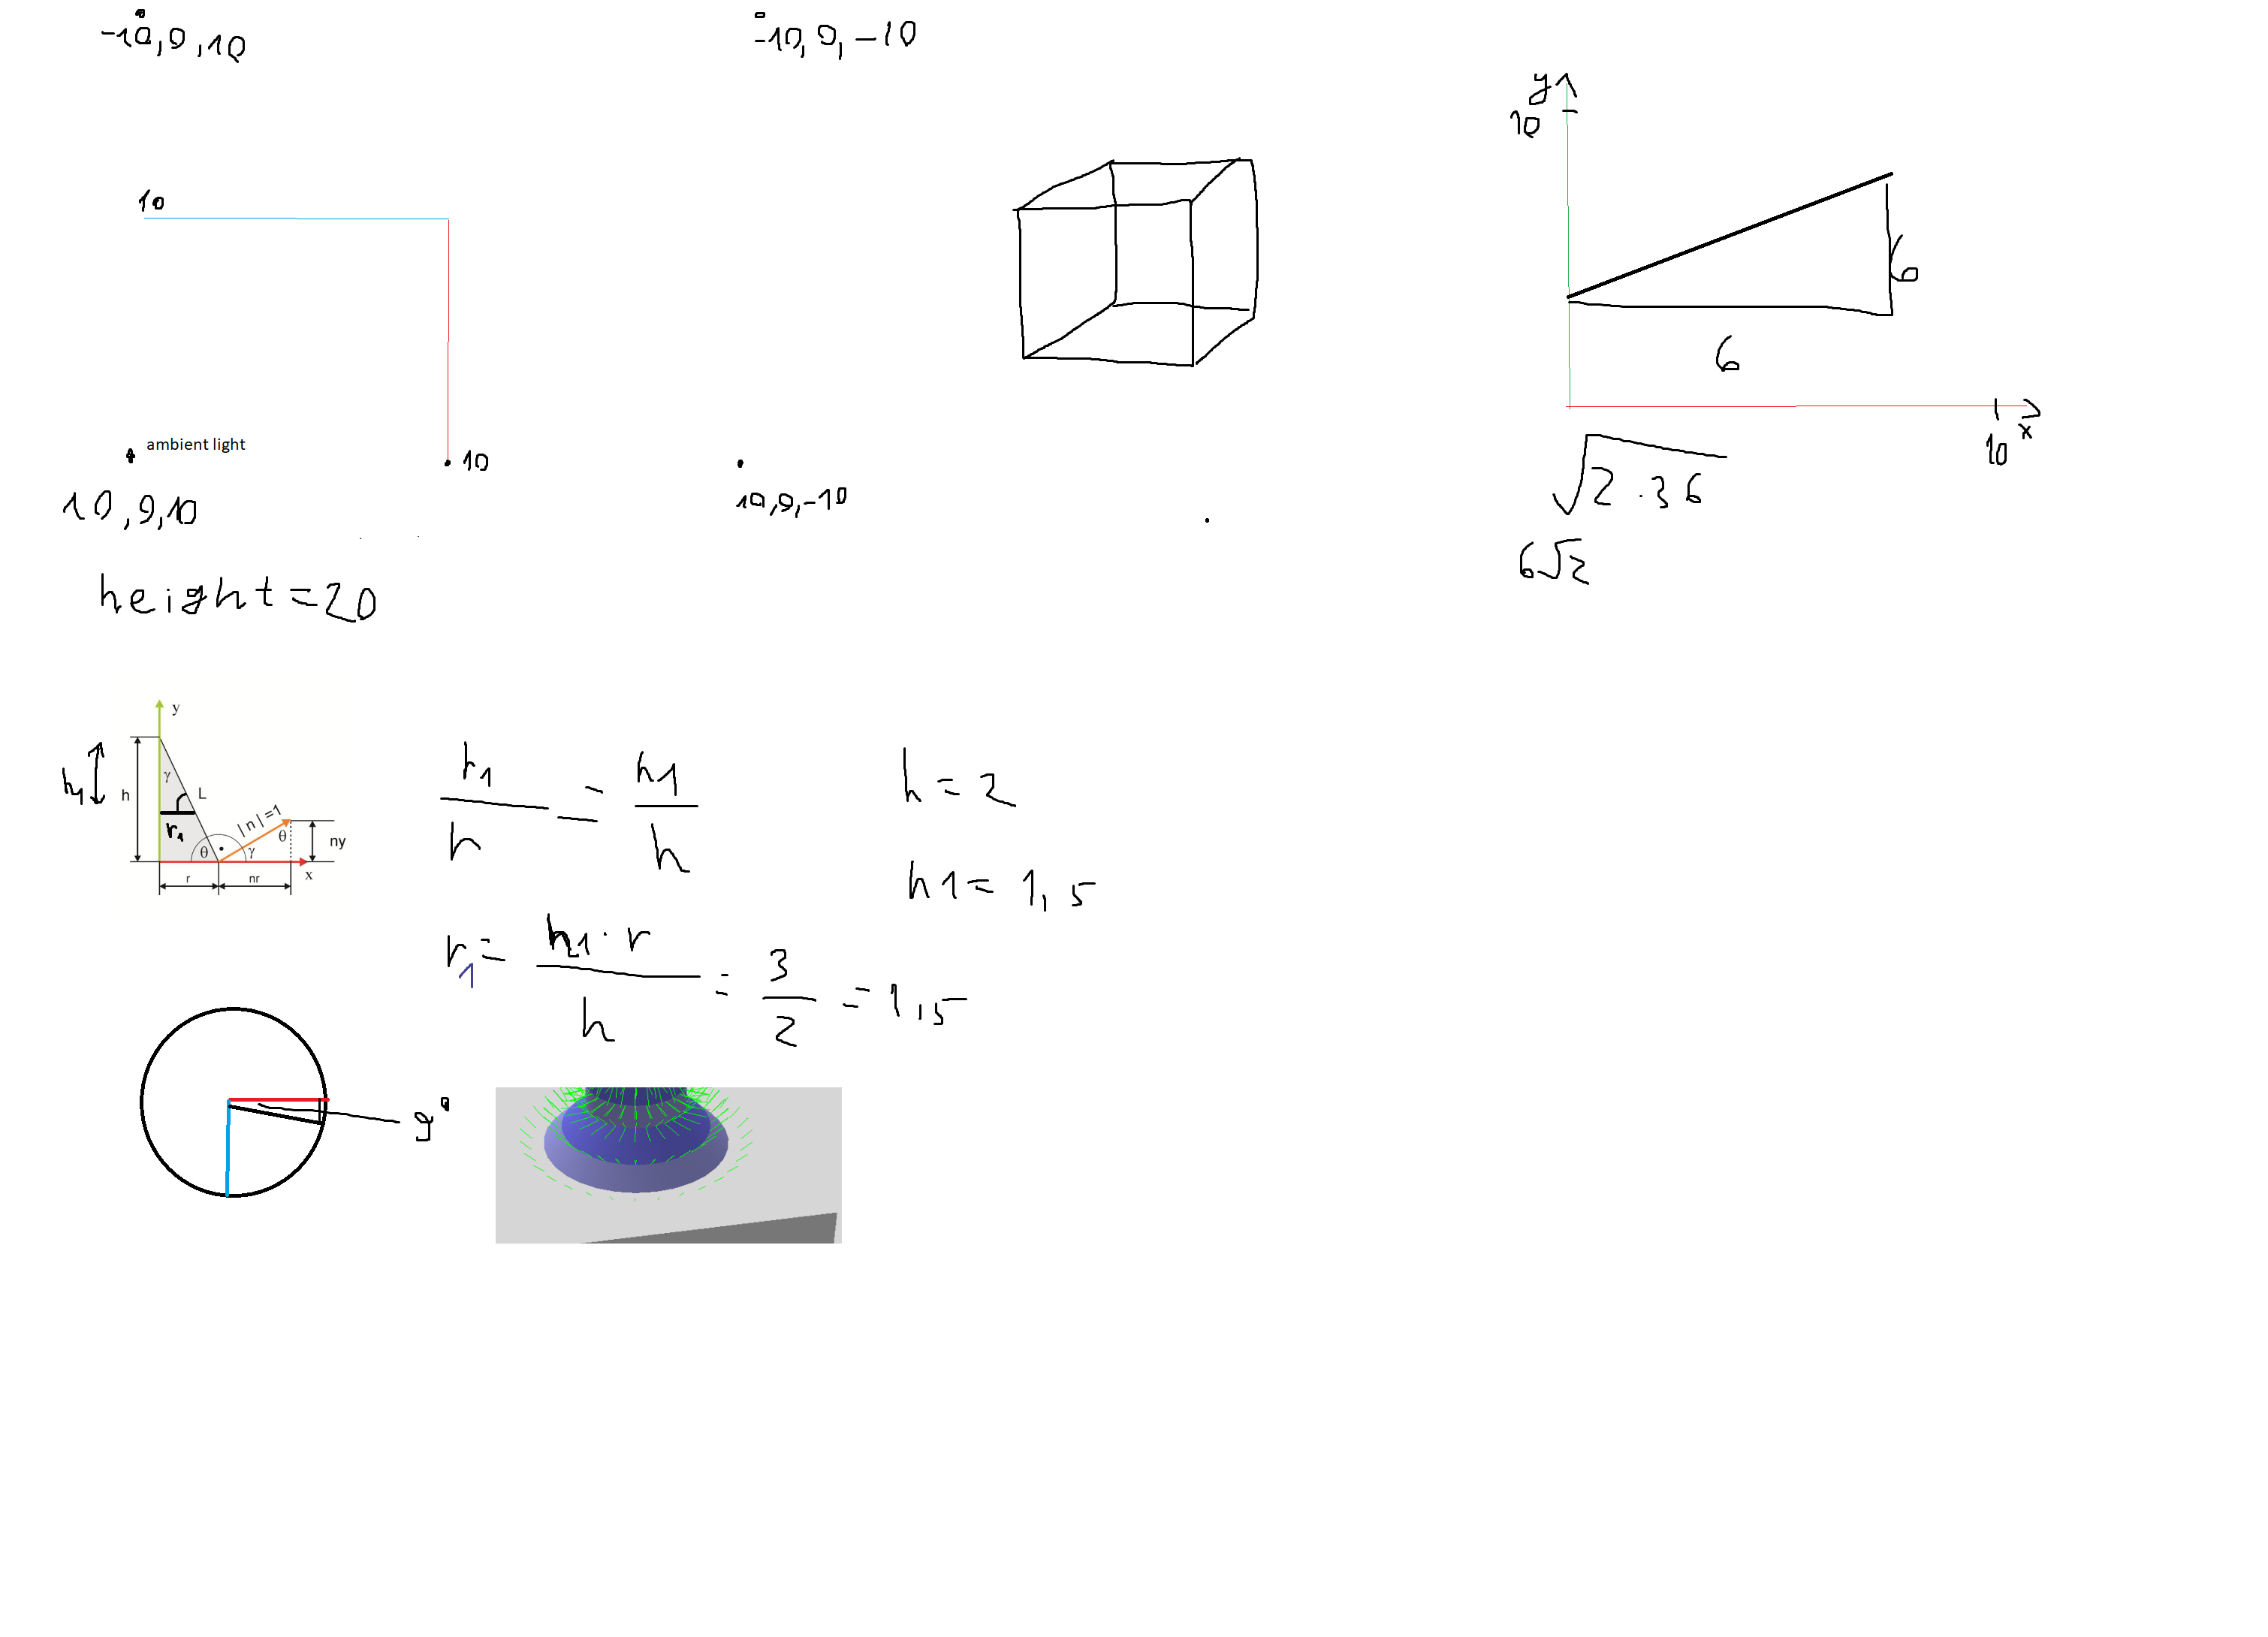 -10,9,10
-10,9,-10
y
10
10
6
6
ambient light
10
x
10
10,9,10
10,9,-10
√2.36
6√2
height=20
y
h1
h
γ
L
r1
|n|=1
θ
θ
γ
ny
r
nr
x
h1/h = h1/h
h=2
h1=1,5
r1 = h1·r/h = 3/2 = 1,5
9°